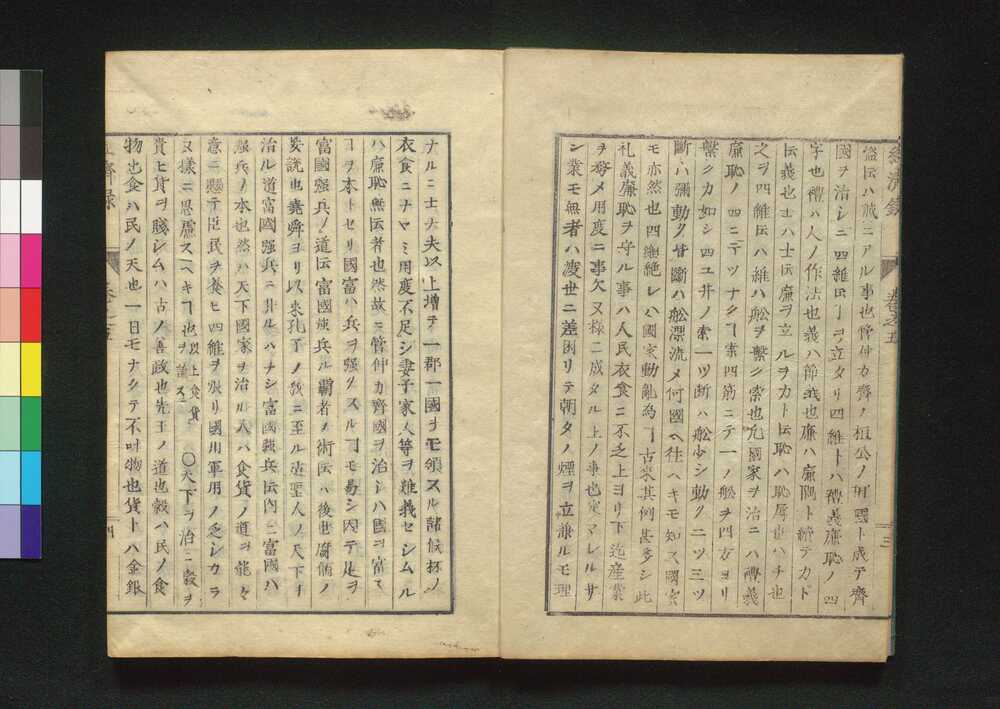 経済録 巻之五 三
伝ハ誠ニアル事也管仲カ齊ノ桓公ノ相國ト成テ齊
國ヲ治シニ四維伝フヿヲ立タリ四維トハ禮義廉恥ノ四
字也禮ハ人ノ作法也義ハ節義也廉ハ廉隅ト続テカド
伝義也士ハ士伝廉ヲ立ルヲカト伝恥ハ恥辱也ハチ也
之ヲ四維伝ハ維ハ舩ヲ繋シ索也凢國家ヲ治ニハ禮義
廉恥ノ四ニテツナクヿ索四筋ニテ一ノ舩ヲ四方ヨリ
繋シカ如シ四ユ井ノ索一ツ断ハ舩少シ動ク二ツ三ツ
断ハ彌動ク皆断ハ舩漂流メ何國ヘ往ヘキモ知ス國家
モ亦然也四維絶レハ國家動乱為ヿ古来其例甚多シ此
礼義廉恥ヲ守ル事ハ人民衣食ニ不乏上ヨリ下迄産業
ヲ務メ用度ニ事欠ヌ様ニ成タル上ノ事也定マレルサ
ン業モ無者ハ渡世ニ差困リテ朝夕ノ煙ヲ立兼ルモ理
ナルニ士大夫以上増テ一郡一國ヲモ領スル諸侯杯ノ
衣食ニナヤミ用度不足シ妻子家人等ヲ難義セシムル
ハ廉恥無伝者也然故ニ管仲カ齊國ヲ治シハ國ヲ富ス
ヿヲ本トセリ國富ハ兵ヲ强クスルヿモ易シ因テ是ヲ
富國强兵ノ道伝富國强兵ル覇者ノ術伝ハ後世腐儒ノ
妄説也堯舜ヨリ以来孔子ノ教ニ至ル迄聖人ノ天下ヲ
治ル道富國强兵ニ非ルハナシ富國强兵伝内ニ富國ハ
强兵ノ本也然ハ天下國家ヲ治ル人ハ食貨ノ道ヲ能々
意ニ懸テ臣民ヲ養ヒ四維ヲ張リ國用軍用ノ乏シカラ
ヌ様ニ思慮スヘキヿ也 以上食貨ヲ論ス 〇天下ヲ治ニ穀ヲ
貴ヒ貨ヲ賤シムハ古ノ善政也先王ノ道也穀ハ民ノ食
物也食ハ民ノ天也一日モナクテ不叶物也貨トハ金銀
済録 巻之五 四